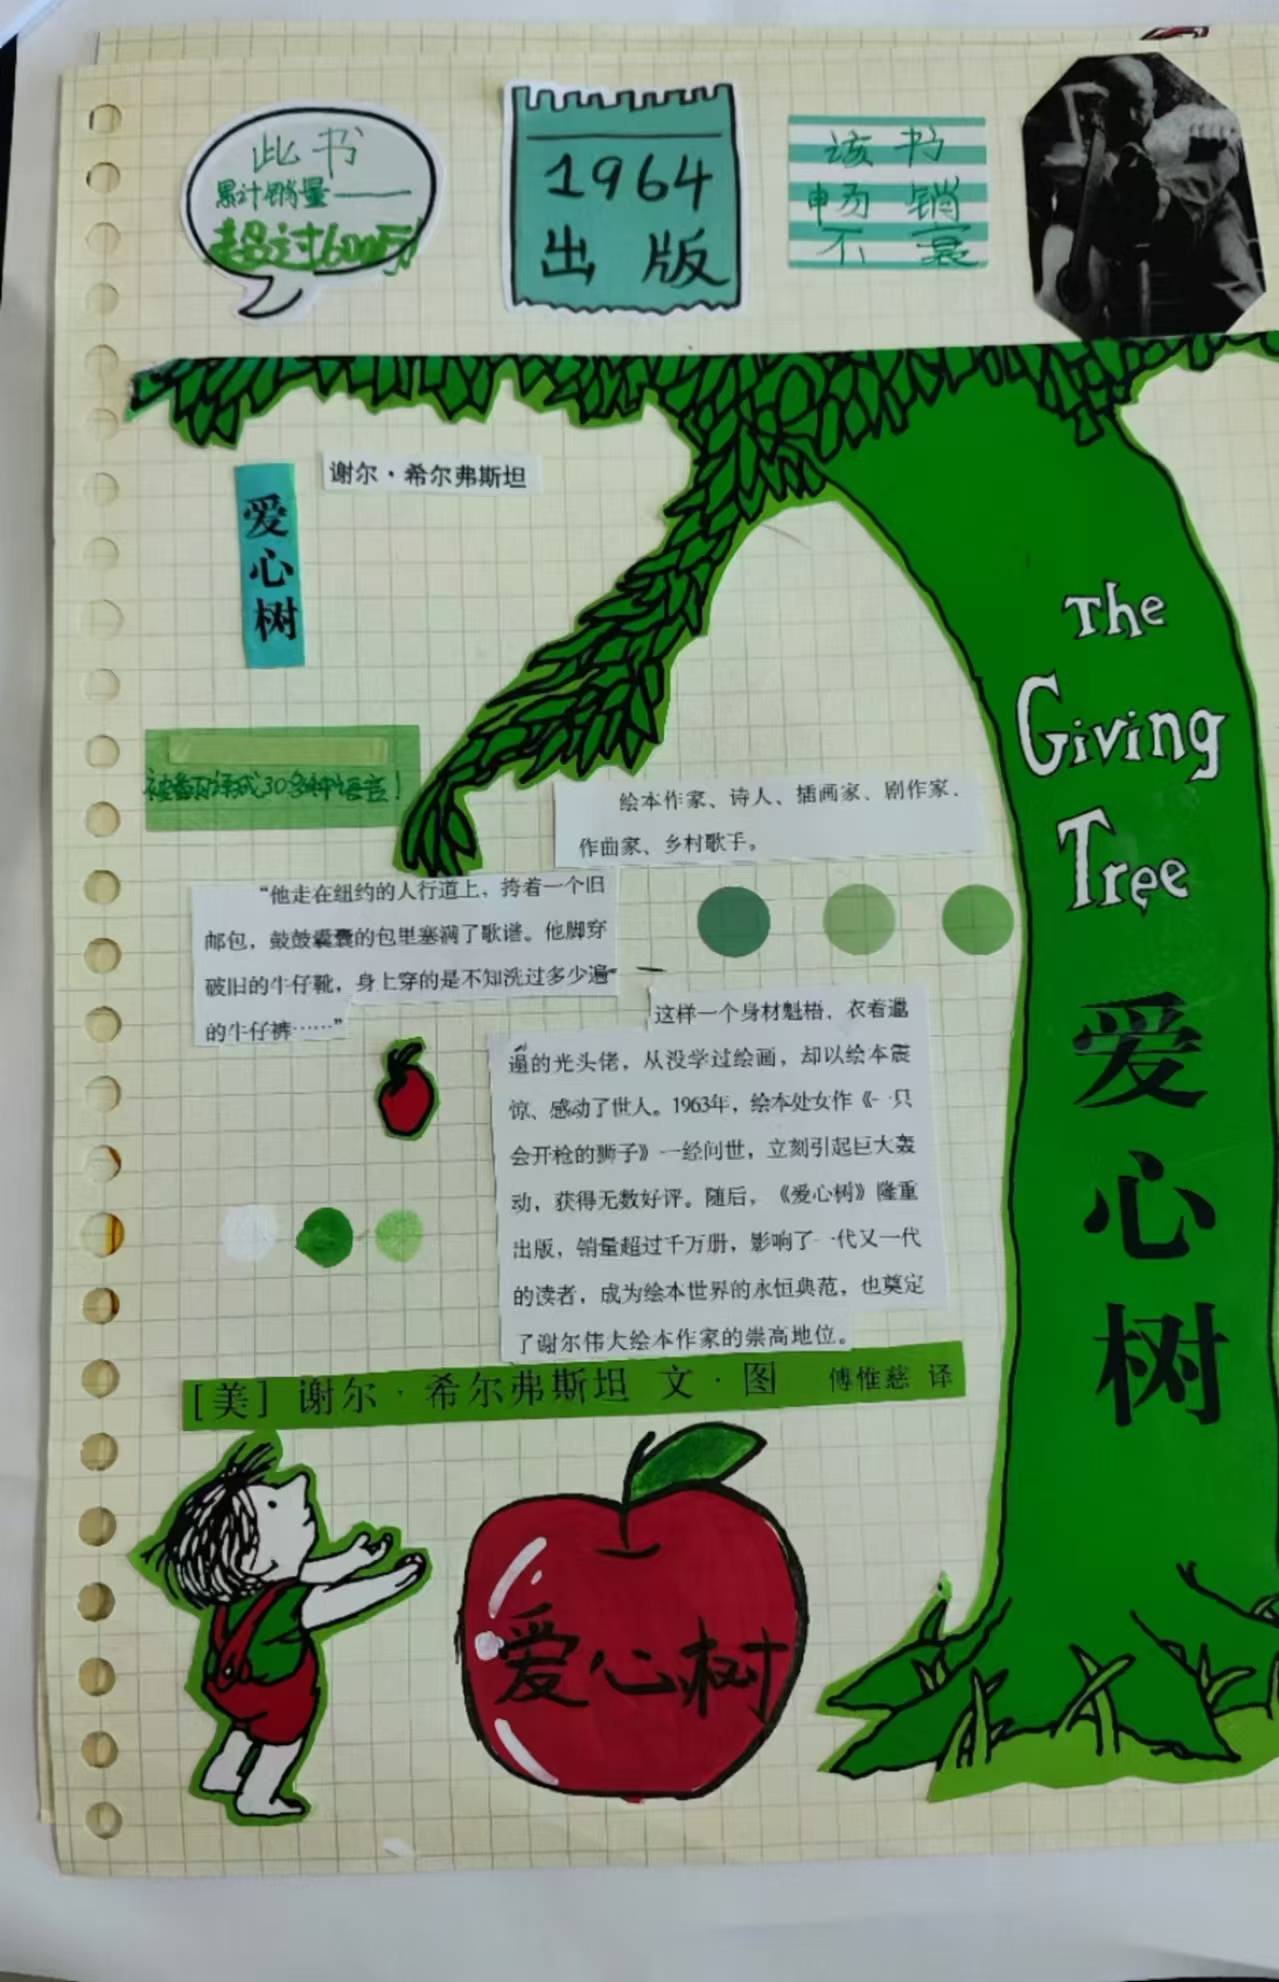 此书
累计销量——
超过600万
1964
出版
该书
畅销
不衰
谢尔·希尔弗斯坦
爱心树
The
Giving
Tree
爱心树
被翻译成30多种语言！
绘本作家、诗人、插画家、剧作家、
作曲家、乡村歌手。
“他走在纽约的人行道上，挎着一个旧
邮包，鼓鼓囊囊的包里塞满了歌谱。他脚穿
破旧的牛仔靴，身上穿的是不知洗过多少遍
的牛仔裤……”
这样一个身材魁梧、衣着邋
遢的光头佬，从没学过绘画，却以绘本震
惊、感动了世人。1963年，绘本处女作《一只
会开枪的狮子》一经问世，立刻引起巨大轰
动，获得无数好评。随后，《爱心树》隆重
出版，销量超过千万册，影响了一代又一代
的读者，成为绘本世界的永恒典范，也奠定
了谢尔伟大绘本作家的崇高地位。
[美] 谢尔·希尔弗斯坦 文·图 傅惟慈 译
爱心树